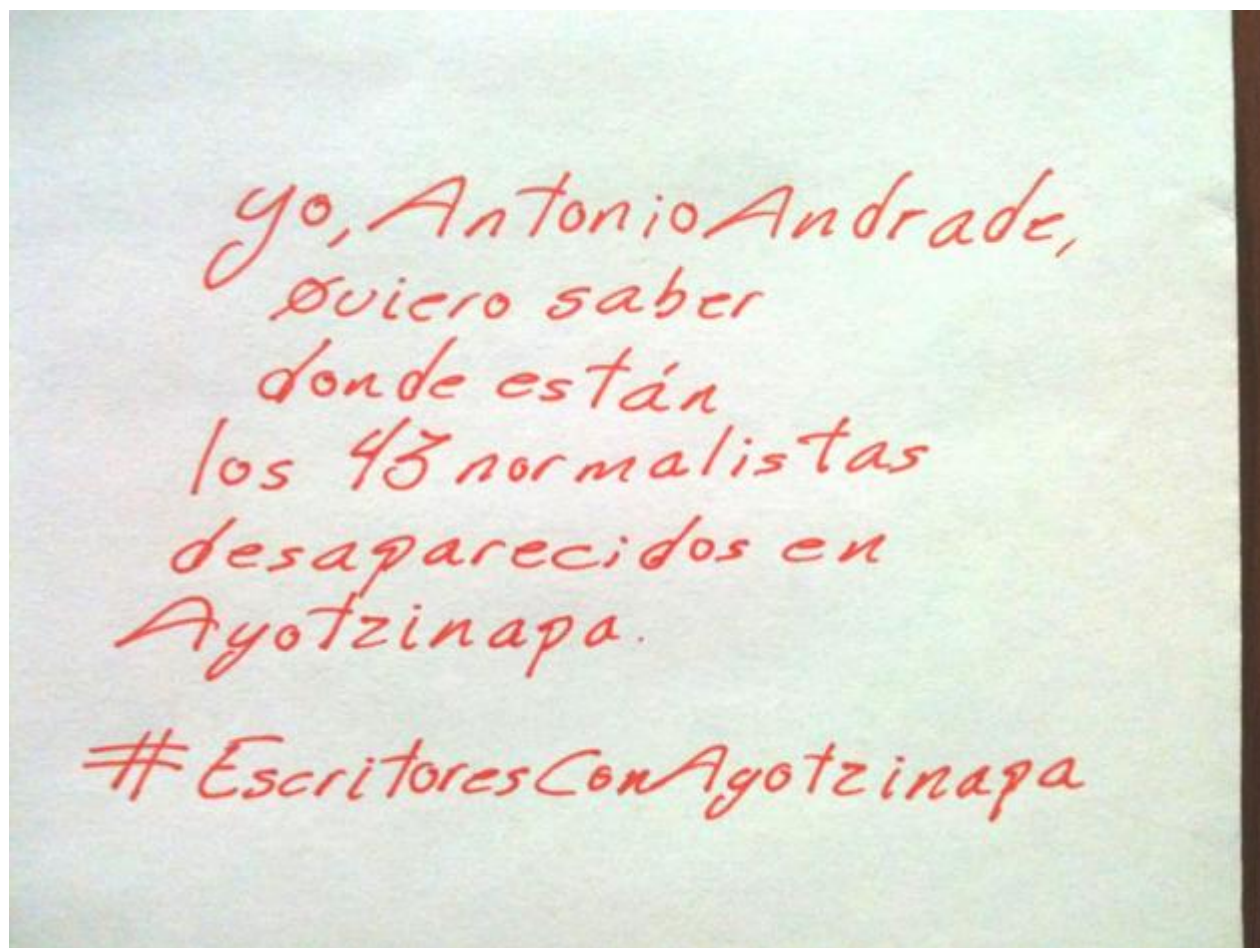 yo, Antonio Andrade,
Quiero saber
donde están
los 43 normalistas
desaparecidos en
Ayotzinapa.
#EscritoresConAyotzinapa